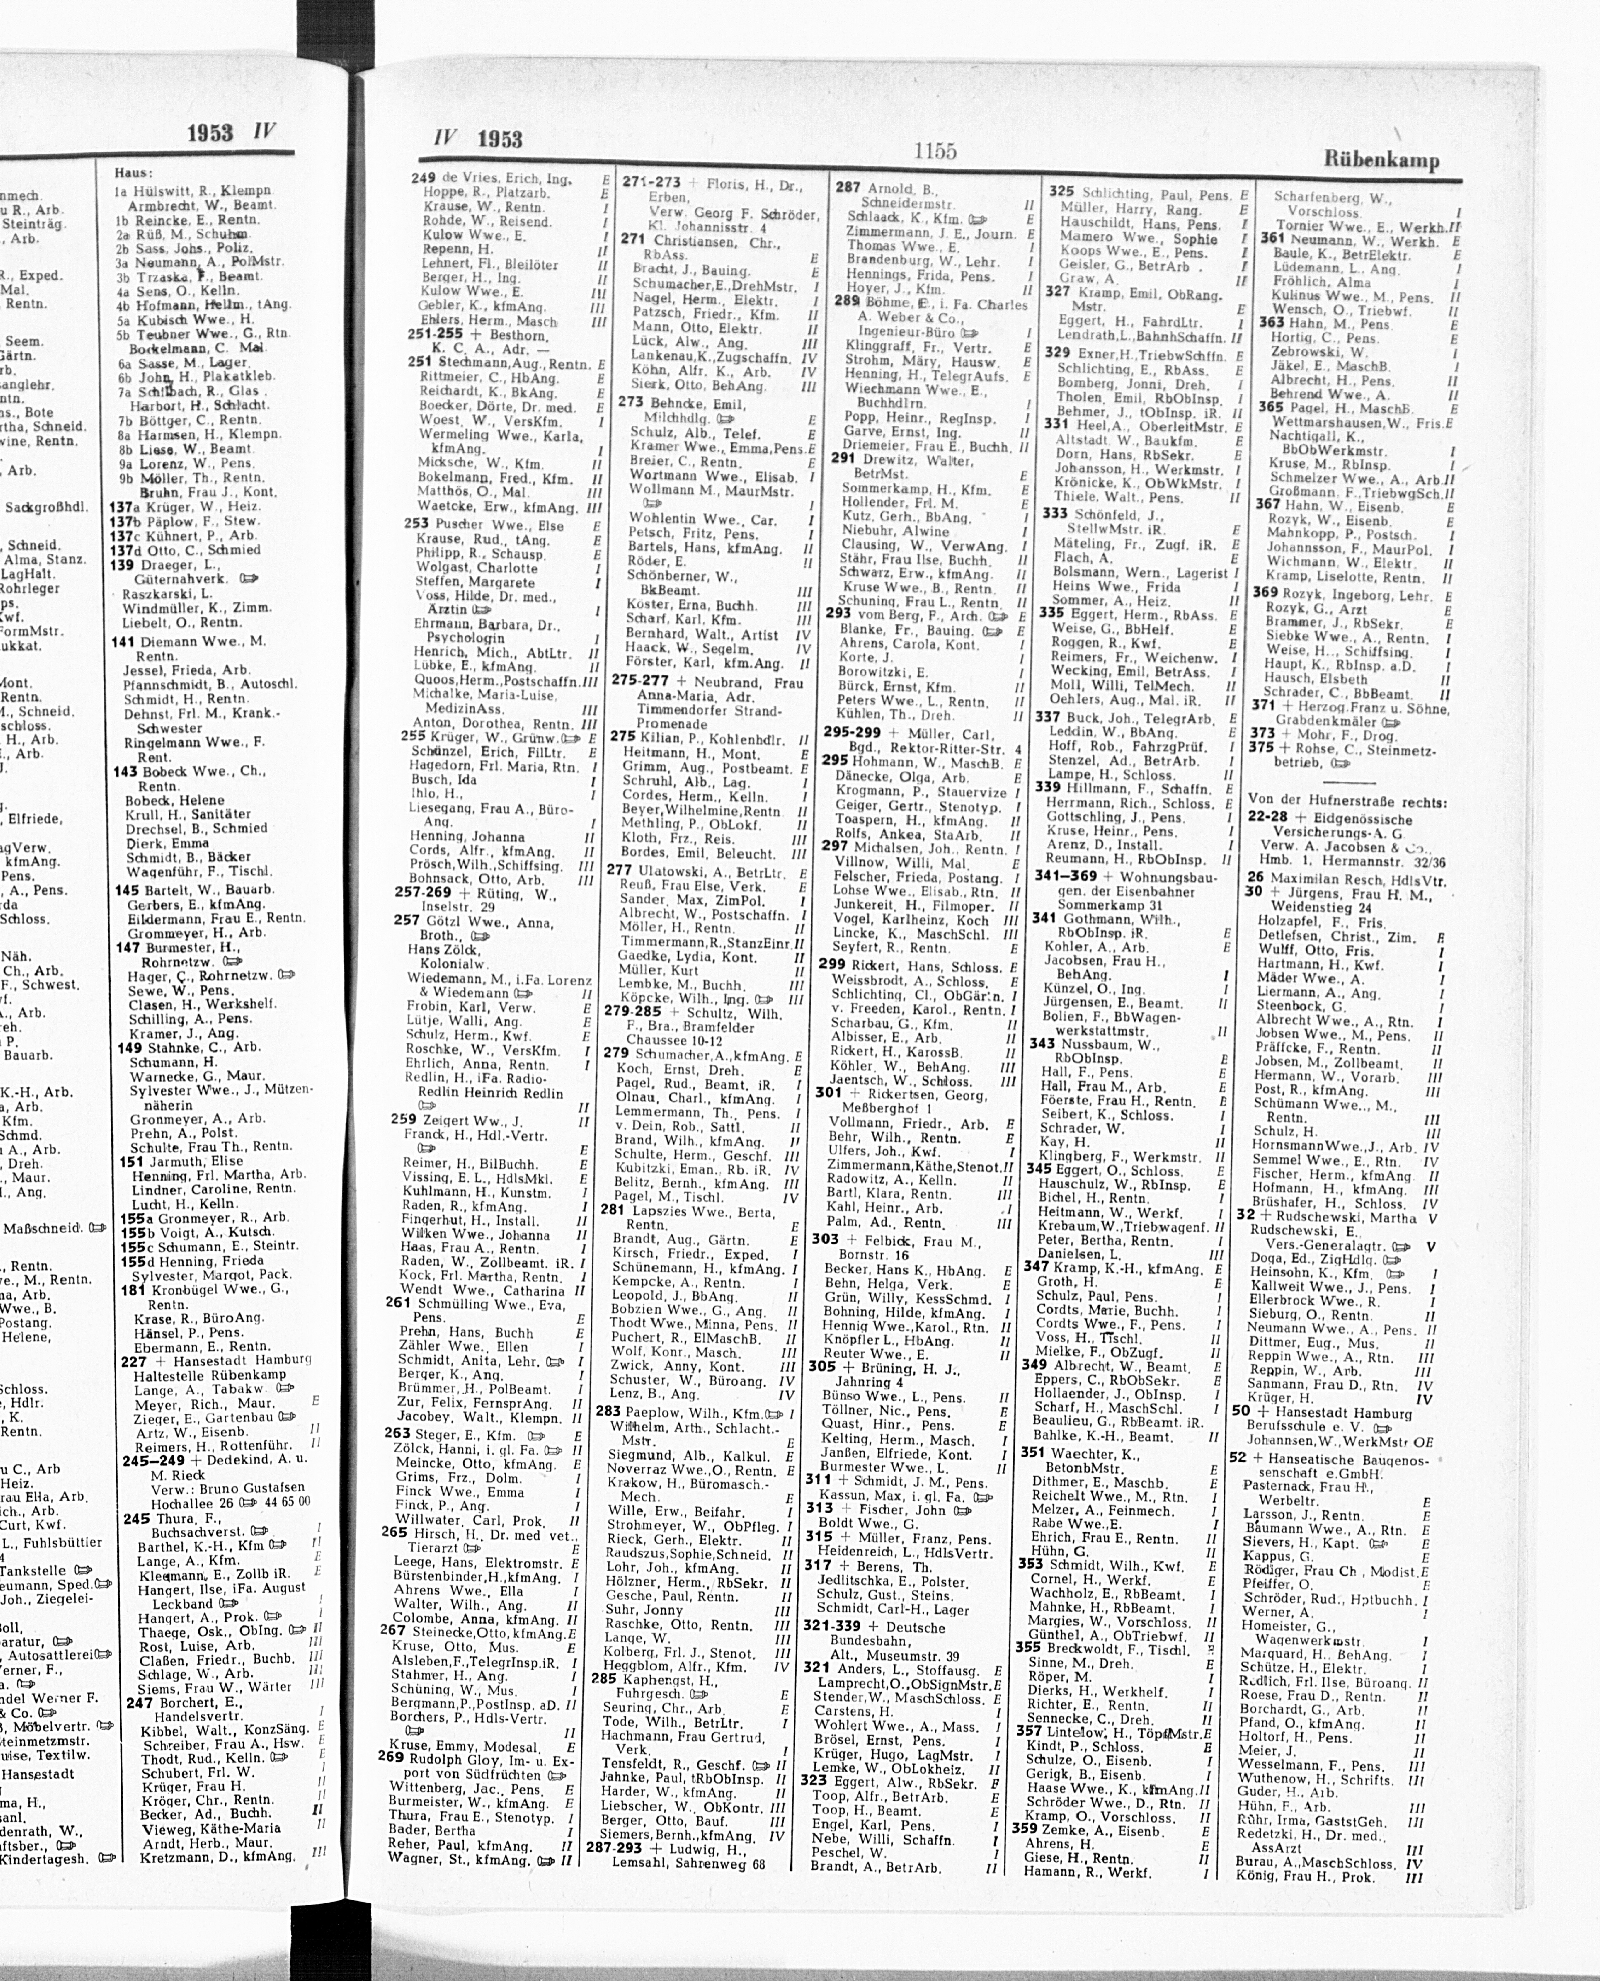 1953 IV
nmech.
u R., Arb.
Steinträg.
, Arb.
R., Exped.
Mal.
, Rentn.
, Seem.
Gärtn.
rb.
sanglehr.
ntn.
ns., Bote
rtha, Schneid.
wine, Rentn.
, Arb.
Sackgroßhdl.
, Schneid.
Alma, Stanz.
LagHalt.
Rohrleger
ps.
Kwf.
FormMstr.
ukkat.
Mont.
Rentn.
M., Schneid.
schloss.
H., Arb.
, Arb.
J.
g.
, Elfriede,
agVerw.
kfmAng.
Pens.
, A., Pens.
rda
Schloss.
Näh.
Ch., Arb.
F., Schwest.
vf.
A., Arb.
reh.
P.
Bauarb.
K.-H., Arb.
a, Arb.
Kfm.
Schmd.
A., Arb.
, Dreh.
, Maur.
, Ang.
Maßschneid.
, Rentn.
we., M., Rentn.
na, Arb.
Wwe., B.
Postang.
Helene,
Schloss.
e, Hdlr.
, K.
Rentn.
u C., Arb
Heiz.
rau Ella, Arb.
ich., Arb.
Curt, Kwf.
L., Fuhlsbüttier
4
Tankstelle
eumann, Sped.
Joh., Ziegelei-
oll.
aratur,
, Autosattlerei
erner, F.,
a.
ndel Werner F.
& Co.
ß, Möbelvertr.
teinmetzmstr.
uise, Textilw.
Hansestadt
ma, H.,
sanl.
denrath, W.,
ftsber.,
Kindertagesh.
Haus:
1a Hülswitt, R., Klempn.
Armbrecht, W., Beamt.
1b Reincke, E., Rentn.
2a Rüß, M., Schuhm.
2b Sass, Johs., Poliz.
3a Neumann, A., PolMstr.
3b Trzaska, F., Beamt.
4a Sens, O., Kelln.
4b Hofmann, Hellm., tAng.
5a Kubisch Wwe., H.
5b Teubner Wwe., G., Rtn.
Bockelmann, C. Mal.
6a Sasse, M., Lager.
6b John, H., Plakatkleb.
7a Schlbach, R., Glas.
Harbort, H., Schlacht.
7b Böttger, C., Rentn.
8a Harmsen, H., Klempn.
8b Liese, W., Beamt.
9a Lorenz, W., Pens.
9b Möller, Th., Rentn.
Bruhn, Frau J., Kont.
137a Krüger, W., Heiz.
137b Päplow, F., Stew.
137c Kühnert, P., Arb.
137d Otto, C., Schmied
139 Draeger, L.,
Güternahverk.
Raszkarski, L.
Windmüller, K., Zimm.
Liebelt, O., Rentn.
141 Diemann Wwe., M.
Rentn.
Jessel, Frieda, Arb.
Pfannschmidt, B., Autoschl.
Schmidt, H., Rentn.
Dehnst, Frl. M., Krank.-
Schwester
Ringelmann Wwe., F.
Rent.
143 Bobeck Wwe., Ch.,
Rentn.
Bobeck, Helene
Krull, H., Sanitäter
Drechsel, B., Schmied
Dierk, Emma
Schmidt, B., Bäcker
Wagenführ, F., Tischl.
145 Bartelt, W., Bauarb.
Gerbers, E., kfmAng.
Eildermann, Frau E., Rentn.
Grommeyer, H., Arb.
147 Burmester, H.,
Rohrnetzw.
Hager, C., Rohrnetzw.
Sewe, W., Pens.
Clasen, H., Werkshelf.
Schilling, A., Pens.
Kramer, J., Ang.
149 Stahnke, C., Arb.
Schumann, H.
Warnecke, G., Maur.
Sylvester Wwe., J., Mützen-
näherin
Gronmeyer, A., Arb.
Prehn, A., Polst.
Schulte, Frau Th., Rentn.
151 Jarmuth, Elise
Henning, Frl. Martha, Arb.
Lindner, Caroline, Rentn.
Lucht, H., Kelln.
155a Gronmeyer, R., Arb.
155b Voigt, A., Kutsch.
155c Schumann, E., Steintr.
155d Henning, Frieda
Sylvester, Margot, Pack.
181 Kronbügel Wwe., G.,
Rentn.
Krase, R., BüroAng.
Hänsel, P., Pens.
Ebermann, E., Rentn.
227 + Hansestadt Hamburg
Haltestelle Rübenkamp
Lange, A., Tabakw.
Meyer, Rich., Maur. E
Zieger, E., Gartenbau
Artz, W., Eisenb. II
Reimers, H., Rottenführ. II
245—249 + Dedekind, A. u.
M. Rieck
Verw.: Bruno Gustafsen
Hochallee 26 44 65 00
245 Thura, F.,
Buchsachverst. I
Barthel, K.-H., Kfm II
Lange, A., Kfm. E
Kleemann, E., Zollb iR. E
Hangert, Ilse, iFa. August
Leckband I
Hangert, A., Prok. I
Thaege, Osk., ObIng. II
Rost, Luise, Arb. III
Claßen, Friedr., Buchb. III
Schlage, W., Arb. III
Siems, Frau W., Wärter III
247 Borchert, E.,
Handelsvertr. I
Kibbel, Walt., KonzSäng. E
Schreiber, Frau A., Hsw. E
Thodt, Rud., Kelln. E
Schubert, Frl. W. I
Krüger, Frau H. II
Kröger, Chr., Rentn. II
Becker, Ad., Buchh. II
Vieweg, Käthe-Maria II
Arndt, Herb., Maur.
Kretzmann, D., kfmAng. III
IV 1953
1155
Rübenkamp
249 de Vries, Erich, Ing. E
Hoppe, R., Platzarb. E
Krause, W., Rentn. I
Rohde, W., Reisend. I
Kulow Wwe., E. I
Repenn, H. II
Lehnert, Fl., Bleilöter II
Berger, H., Ing. II
Kulow Wwe., E. III
Gebler, K., kfmAng. III
Ehlers, Herm., Masch III
251-255 + Besthorn,
K. C. A., Adr. —
251 Stechmann, Aug., Rentn. E
Rittmeier, C., HbAng. E
Reichardt, K., BkAng. E
Boecker, Dörte, Dr. med. E
Woest, W., VersKfm. I
Wermeling Wwe., Karla,
kfmAng. I
Micksche, W., Kfm. II
Bokelmann, Fred., Kfm. II
Matthös, O., Mal. III
Waetcke, Erw., kfmAng. III
253 Puscher Wwe., Else E
Krause, Rud., tAng. E
Philipp, R., Schausp. E
Wolgast, Charlotte I
Steffen, Margarete I
Voss, Hilde, Dr. med.,
Ärztin I
Ehrmann, Barbara, Dr.,
Psychologin I
Henrich, Mich., AbtLtr. II
Lübke, E., kfmAng. II
Quoos, Herm., Postschaffn. III
Michalke, Maria-Luise,
MedizinAss. III
Anton, Dorothea, Rentn. III
255 Krüger, W., Grünw. E
Schünzel, Erich, FilLtr. E
Hagedorn, Frl. Maria, Rtn. I
Busch, Ida I
Ihlo, H., I
Liesegang, Frau A., Büro-
Ang. I
Henning, Johanna II
Cords, Alfr., kfmAng. II
Prösch, Wilh., Schiffsing. III
Bohnsack, Otto, Arb. III
257-269 + Rüting, W.,
Inselstr. 29
257 Götzl Wwe., Anna,
Broth.,
Hans Zölck,
Kolonialw.
Wiedemann, M., i.Fa. Lorenz
& Wiedemann II
Frobin, Karl, Verw. E
Lütje, Walli, Ang. E
Schulz, Herm., Kwf. E
Roschke, W., VersKfm. I
Ehrlich, Anna, Rentn. I
Redlin, H., iFa. Radio-
Redlin Heinrich Redlin
II
259 Zeigert Ww., J. II
Franck, H., Hdl.-Vertr.
E
Reimer, H., BilBuchh. E
Vissing, E. L., HdlsMkl. E
Kuhlmann, H., Kunstm. I
Raden, R., kfmAng. I
Fingerhut, H., Install. II
Wilken Wwe., Johanna II
Haas, Frau A., Rentn. I
Raden, W., Zollbeamt. iR. I
Kock, Frl. Martha, Rentn. I
Wendt Wwe., Catharina II
261 Schmülling Wwe., Eva,
Pens. E
Prehn, Hans, Buchh E
Zähler Wwe., Ellen I
Schmidt, Anita, Lehr. I
Berger, K., Ang. I
Brümmer, H., PolBeamt. I
Zur, Felix, FernsprAng. II
Jacobey, Walt., Klempn. II
263 Steger, E., Kfm. E
Zölck, Hanni, i. gl. Fa. II
Meincke, Otto, kfmAng. E
Grims, Frz., Dolm. I
Finck Wwe., Emma I
Finck, P., Ang. I
Willwater, Carl, Prok. II
265 Hirsch, H., Dr. med vet.,
Tierarzt E
Leege, Hans, Elektromstr. E
Bürstenbinder, H., kfmAng. I
Ahrens Wwe., Ella I
Walter, Wilh., Ang. II
Colombe, Anna, kfmAng. II
267 Steinecke, Otto, kfmAng. E
Kruse, Otto, Mus. E
Alsleben, F., TelegrInsp. iR. I
Stahmer, H., Ang. I
Schüning, W., Mus. I
Bergmann, P., PostInsp. aD. II
Borchers, P., Hdls-Vertr.
II
Kruse, Emmy, Modesal. E
269 Rudolph Gloy, Im- u. Ex-
port von Südfrüchten
Wittenberg, Jac., Pens. E
Burmeister, W., kfmAng. E
Thura, Frau E., Stenotyp. I
Bader, Bertha I
Reher, Paul, kfmAng. II
Wagner, St., kfmAng. II
271-273 + Floris, H., Dr.,
Erben,
Verw. Georg F. Schröder,
Kl. Johannisstr. 4
271 Christiansen, Chr.,
RbAss. E
Bracht, J., Bauing. E
Schumacher, E., DrehMstr. I
Nagel, Herm., Elektr. I
Patzsch, Friedr., Kfm. II
Mann, Otto, Elektr. II
Lück, Alw., Ang. III
Lankenau, K., Zugschaffn. IV
Köhn, Alfr. K., Arb. IV
Sierk, Otto, BehAng. III
273 Behncke, Emil,
Milchhdlg. E
Schulz, Alb., Telef. E
Kramer Wwe., Emma, Pens. E
Breier, C., Rentn. E
Wortmann Wwe., Elisab. I
Wollmann M., MaurMstr.
I
Wohlentin Wwe., Car. I
Petsch, Fritz, Pens. I
Bartels, Hans, kfmAng. II
Röder, E. II
Schönberner, W.,
BkBeamt. III
Koster, Erna, Buchh. III
Scharf, Karl, Kfm. III
Bernhard, Walt., Artist IV
Haack, W., Segelm. IV
Förster, Karl, kfm.Ang. II
275-277 + Neubrand, Frau
Anna-Maria, Adr.
Timmendorfer Strand-
Promenade
275 Kilian, P., Kohlenhdlr. II
Heitmann, H., Mont. E
Grimm, Aug., Postbeamt. E
Schruhl, Alb., Lag. I
Cordes, Herm., Kelln. I
Beyer, Wilhelmine, Rentn II
Methling, P., ObLokf. II
Kloth, Frz., Reis. III
Bordes, Emil, Beleucht. III
277 Ulatowski, A., BetrLtr. E
Reuß, Frau Else, Verk. E
Sander, Max, ZimPol. I
Albrecht, W., Postschaffn. I
Möller, H., Rentn. II
Timmermann, R., StanzEinr. II
Gaedke, Lydia, Kont. II
Müller, Kurt II
Lembke, M., Buchh. III
Köpcke, Wilh., Ing. III
279-285 + Schultz, Wilh.
F., Bra., Bramfelder
Chaussee 10-12
279 Schumacher, A., kfmAng. E
Koch, Ernst, Dreh. E
Pagel, Rud., Beamt. iR. I
Olnau, Charl., kfmAng. I
Lemmermann, Th., Pens. I
v. Dein, Rob., Sattl. II
Brand, Wilh., kfmAng. II
Schulte, Herm., Geschf. III
Kubitzki, Eman., Rb. iR. IV
Belitz, Bernh., kfmAng. III
Pagel, M., Tischl. IV
281 Lapszies Wwe., Berta,
Rentn. E
Brandt, Aug., Gärtn. E
Kirsch, Friedr., Exped. I
Schünemann, H., kfmAng. I
Kempcke, A., Rentn. I
Leopold, J., BbAng. II
Bobzien Wwe., G., Ang. II
Thodt Wwe., Minna, Pens. II
Puchert, R., ElMaschB. II
Wolf, Konr., Masch. III
Zwick, Anny, Kont. III
Schuster, W., Büroang. IV
Lenz, B., Ang. IV
283 Paeplow, Wilh., Kfm. I
Wilhelm, Arth., Schlacht.-
Mstr. E
Siegmund, Alb., Kalkul. E
Noverraz Wwe., O., Rentn. E
Krakow, H., Büromasch.-
Mech. E
Wille, Erw., Beifahr. I
Strohmeyer, W., ObPfleg. I
Rieck, Gerh., Elektr. II
Raudszus, Sophie, Schneid. II
Lohr, Joh., kfmAng. II
Hölzner, Herm., RbSekr. II
Gesche, Paul, Rentn. II
Suhr, Jonny III
Raschke, Otto, Rentn. III
Lange, W. III
Kolberg, Frl. J., Stenot. III
Heggblom, Alfr., Kfm. IV
285 Kaphengst, H.,
Fuhrgesch. E
Seuring, Chr., Arb. E
Tode, Wilh., BetrLtr. I
Hachmann, Frau Gertrud,
Verk. I
Tensfeldt, R., Geschf. II
Jahnke, Paul, tRbObInsp. II
Harder, W., kfmAng. II
Liebscher, W., ObKontr. III
Berger, Otto, Bauf. III
Siemers, Bernh., kfmAng. IV
287-293 + Ludwig, H.,
Lemsahl, Sahrenweg 68
287 Arnold, B.,
Schneidermstr. II
Schlaack, K., Kfm. E
Zimmermann, J. E., Journ. E
Thomas Wwe., E. I
Brandenburg, W., Lehr. I
Hennings, Frida, Pens. I
Hoyer, J., Kfm. II
289 Böhme, E., i. Fa. Charles
A. Weber & Co.,
Ingenieur-Büro I
Klinggraff, Fr., Vertr. E
Strohm, Mary, Hausw. E
Henning, H., TelegrAufs. E
Wiechmann Wwe., E.,
Buchhdlrn. I
Popp, Heinr., RegInsp. I
Garve, Ernst, Ing. II
Driemeier, Frau E., Buchh. II
291 Drewitz, Walter,
BetrMst. E
Sommerkamp, H., Kfm. E
Hollender, Frl. M. E
Kutz, Gerh., BbAng. I
Niebuhr, Alwine I
Clausing, W., VerwAng. I
Stähr, Frau Ilse, Buchh. II
Schwarz, Erw., kfmAng. II
Kruse Wwe., B., Rentn. II
Schuning, Frau L., Rentn. II
293 vom Berg, F., Arch. E
Blanke, Fr., Bauing. E
Ahrens, Carola, Kont. I
Korte, J. I
Borowitzki, E. I
Bürck, Ernst, Kfm. II
Peters Wwe., L., Rentn. II
Kühlen, Th., Dreh. II
295-299 + Müller, Carl,
Bgd., Rektor-Ritter-Str. 4
295 Hohmann, W., MaschB. E
Dänecke, Olga, Arb. E
Krogmann, P., Stauervize I
Geiger, Gertr., Stenotyp. I
Toaspern, H., kfmAng. II
Rolfs, Ankea, StaArb. II
297 Michalsen, Joh., Rentn. I
Villnow, Willi, Mal. E
Felscher, Frieda, Postang. I
Lohse Wwe., Elisab., Rtn. II
Junkereit, H., Filmoper. II
Vogel, Karlheinz, Koch III
Lincke, K., MaschSchl. III
Seyfert, R., Rentn. E
299 Rickert, Hans, Schloss. E
Weissbrodt, A., Schloss. E
Schlichting, Cl., ObGärtn. I
v. Freeden, Karol., Rentn. I
Scharbau, G., Kfm. II
Albisser, E., Arb. II
Rickert, H., KarossB. II
Köhler, W., BehAng. III
Jaentsch, W., Schloss. III
301 + Rickertsen, Georg,
Meßberghof 1
Vollmann, Friedr., Arb. E
Behr, Wilh., Rentn. E
Ulfers, Joh., Kwf. I
Zimmermann, Käthe, Stenot. II
Radowitz, A., Kelln. II
Bartl, Klara, Rentn. III
Kahl, Heinr., Arb. I
Palm, Ad., Rentn. III
303 + Felbick, Frau M.,
Bornstr. 16
Becker, Hans K., HbAng. E
Behn, Helga, Verk. E
Grün, Willy, KessSchmd. I
Bohning, Hilde, kfmAng. I
Hennig Wwe., Karol., Rtn. II
Knöpfler L., HbAng. II
Reuter Wwe., E. II
305 + Brüning, H. J.,
Jahnring 4
Bünso Wwe., L., Pens. II
Töllner, Nic., Pens. E
Quast, Hinr., Pens. E
Kelting, Herm., Masch. I
Janßen, Elfriede, Kont. I
Burmester Wwe., L. II
311 + Schmidt, J. M., Pens.
Kassun, Max, i. gl. Fa.
313 + Fischer, John
Boldt Wwe., G.
315 + Müller, Franz, Pens.
Heidenreich, L., HdlsVertr.
317 + Berens, Th.
Jedlitschka, E., Polster.
Schulz, Gust., Steins.
Schmidt, Carl-H., Lager
321-339 + Deutsche
Bundesbahn,
Alt., Museumstr. 39
321 Anders, L., Stoffausg. E
Lamprecht, O., ObSignMstr. E
Stender, W., MaschSchloss. E
Carstens, H. I
Wohlert Wwe., A., Mass. I
Brösel, Ernst, Pens. I
Krüger, Hugo, LagMstr. I
Lemke, W., ObLokheiz. II
323 Eggert, Alw., RbSekr. E
Toop, Alfr., BetrArb. E
Toop, H., Beamt. E
Engel, Karl, Pens. I
Nebe, Willi, Schaffn. I
Peschel, W. I
Brandt, A., BetrArb. II
325 Schlichting, Paul, Pens. E
Müller, Harry, Rang. E
Hauschildt, Hans, Pens. I
Mamero Wwe., Sophie I
Koops Wwe., E., Pens. I
Geisler, G., BetrArb. I
Graw, A. II
327 Kramp, Emil, ObRang.
Mstr. E
Eggert, H., FahrdLtr. I
Lendrath, L., BahnhSchaffn. II
329 Exner, H., TriebwSchffn. E
Schlichting, E., RbAss. E
Bomberg, Jonni, Dreh. I
Tholen, Emil, RbObInsp. I
Behmer, J., tObInsp. iR. II
331 Heel, A., OberleitMstr. E
Altstadt, W., Baukfm. E
Dorn, Hans, RbSekr. E
Johansson, H., Werkmstr. I
Krönicke, K., ObWkMstr. I
Thiele, Walt., Pens. II
333 Schönfeld, J.,
StellwMstr. iR. E
Mäteling, Fr., Zugf. iR. E
Flach, A. E
Bolsmann, Wern., Lagerist I
Heins Wwe., Frida I
Sommer, A., Heiz. II
335 Eggert, Herm., RbAss. E
Weise, G., BbHelf. E
Roggen, R., Kwf. E
Reimers, Fr., Weichenw. I
Wecking, Emil, BetrAss. I
Moll, Willi, TelMech. II
Oehlers, Aug., Mal. iR. II
337 Buck, Joh., TelegrArb. E
Leddin, W., BbAng. E
Hoff, Rob., FahrzgPrüf. I
Stenzel, Ad., BetrArb. I
Lampe, H., Schloss. II
339 Hillmann, F., Schaffn. E
Herrmann, Rich., Schloss. E
Gottschling, J., Pens. I
Kruse, Heinr., Pens. I
Arenz, D., Install. II
Reumann, H., RbObInsp. II
341—369 + Wohnungsbau-
gen. der Eisenbahner
Sommerkamp 31
341 Gothmann, Wilh.,
RbObInsp. iR. E
Kohler, A., Arb. E
Jacobsen, Frau H.,
BehAng. I
Künzel, O., Ing. I
Jürgensen, E., Beamt. II
Bolien, F., BbWagen-
werkstattmstr. II
343 Nussbaum, W.,
RbObInsp. E
Hall, F., Pens. E
Hall, Frau M., Arb. E
Föerste, Frau H., Rentn. E
Seibert, K., Schloss. I
Schrader, W. I
Kay, H. II
Klingberg, F., Werkmstr. II
345 Eggert, O., Schloss. E
Hauschulz, W., RbInsp. E
Bichel, H., Rentn. I
Heitmann, W., Werkf. I
Krebaum, W., Triebwagenf. II
Peter, Bertha, Rentn. I
Danielsen, L. III
347 Kramp, K.-H., kfmAng. E
Groth, H. E
Schulz, Paul, Pens. I
Cordts, Marie, Buchh. I
Cordts Wwe., F., Pens. I
Voss, H., Tischl. II
Mielke, F., ObZugf. II
349 Albrecht, W., Beamt. E
Eppers, C., RbObSekr. E
Hollaender, J., ObInsp. I
Scharf, H., MaschSchl. I
Beaulieu, G., RbBeamt. iR.
Bahlke, K.-H., Beamt. II
351 Waechter, K.,
BetonbMstr. E
Dithmer, E., Maschb. E
Reichelt Wwe., M., Rtn. I
Melzer, A., Feinmech. I
Rabe Wwe., E. I
Ehrich, Frau E., Rentn. II
Hühn, G. II
353 Schmidt, Wilh., Kwf. E
Cornel, H., Werkf. E
Wachholz, E., RbBeamt. I
Mahnke, H., RbBeamt. I
Margies, W., Vorschloss. II
Günthel, A., ObTriebwf. II
355 Breckwoldt, F., Tischl. E
Sinne, M., Dreh. E
Röper, M. I
Dierks, H., Werkhelf. I
Richter, E., Rentn. II
Sennecke, C., Dreh. II
357 Lintelow, H., TöpfMstr. E
Kindt, P., Schloss. E
Schulze, O., Eisenb. I
Gerigk, B., Eisenb. I
Haase Wwe., K., kfmAng. II
Schröder Wwe., D., Rtn. II
Kramp, O., Vorschloss. II
359 Zemke, A., Eisenb. E
Ahrens, H. E
Giese, H., Rentn. II
Hamann, R., Werkf. I
Scharfenberg, W.,
Vorschloss. I
Tornier Wwe., E., Werkh. II
361 Neumann, W., Werkh. E
Baule, K., BetrElektr. E
Lüdemann, L., Ang. I
Fröhlich, Alma I
Kulinus Wwe., M., Pens. II
Wensch, O., Triebwf. II
363 Hahn, M., Pens. E
Hortig, C., Pens. E
Zebrowski, W. I
Jäkel, E., MaschB. I
Albrecht, H., Pens. II
Behrend Wwe., A. II
365 Pagel, H., MaschB. E
Wettmarshausen, W., Fris. E
Nachtigall, K.,
BbObWerkmstr. I
Kruse, M., RbInsp. I
Schmelzer Wwe., A., Arb. II
Großmann, F., TriebwgSch. II
367 Hahn, W., Eisenb. E
Rozyk, W., Eisenb. E
Mahnkopp, P., Postsch. I
Johannsson, F., MaurPol. I
Wichmann, W., Elektr. II
Kramp, Liselotte, Rentn. II
369 Rozyk, Ingeborg, Lehr. E
Rozyk, G., Arzt E
Brammer, J., RbSekr. E
Siebke Wwe., A., Rentn. I
Weise, H., Schiffsing. I
Haupt, K., RbInsp. a.D. I
Hausch, Elsbeth II
Schrader, C., BbBeamt. II
371 + Herzog, Franz u. Söhne,
Grabdenkmäler
373 + Mohr, F., Drog.
375 + Rohse, C., Steinmetz-
betrieb,
Von der Hufnerstraße rechts:
22-28 + Eidgenössische
Versicherungs-A. G.
Verw. A. Jacobsen & Co.,
Hmb. 1, Hermannstr. 32/36
26 Maximilan Resch, HdlsVtr.
30 + Jürgens, Frau H. M.,
Weidenstieg 24
Holzapfel, F., Fris.
Detlefsen, Christ., Zim. E
Wulff, Otto, Fris. I
Hartmann, H., Kwf. I
Mäder Wwe., A. I
Liermann, A., Ang. I
Steenbock, G. I
Albrecht Wwe., A., Rtn. I
Jobsen Wwe., M., Pens. II
Präffcke, F., Rentn. II
Jobsen, M., Zollbeamt. II
Hermann, W., Vorarb. III
Post, R., kfmAng. III
Schümann Wwe., M.,
Rentn. III
Schulz, H. III
Hornsmann Wwe., J., Arb. IV
Semmel Wwe., E., Rtn. IV
Fischer, Herm., kfmAng. II
Hofmann, H., kfmAng. III
Brüshafer, H., Schloss. IV
32 + Rudschewski, Martha V
Rudschewski, E.,
Vers.-Generalagtr. V
Doga, Ed., ZigHdlg.
Heinsohn, K., Kfm. I
Kallweit Wwe., J., Pens. I
Ellerbrock Wwe., R. I
Sieburg, O., Rentn. II
Neumann Wwe., A., Pens. II
Dittmer, Eug., Mus. II
Reppin Wwe., A., Rtn. III
Reppin, W., Arb. III
Sanmann, Frau D., Rtn. IV
Krüger, H. IV
50 + Hansestadt Hamburg
Berufsschule e. V.
Johannsen, W., WerkMstr OE
52 + Hanseatische Baugenos-
senschaft e.GmbH.
Pasternack, Frau H.,
Werbeltr. E
Larsson, J., Rentn. E
Baumann Wwe., A., Rtn. E
Sievers, H., Kapt. E
Kappus, G. E
Rödiger, Frau Ch., Modist. E
Pfeiffer, O. E
Schröder, Rud., Hptbuchh. I
Werner, A. I
Homeister, G.,
Wagenwerkmstr. I
Marquard, H., BehAng. I
Schütze, H., Elektr. I
Redlich, Frl. Ilse, Büroang. II
Roese, Frau D., Rentn. II
Borchardt, G., Arb. II
Pfand, O., kfmAng. II
Holtorf, H., Pens. II
Meier, J. II
Wesselmann, F., Pens. III
Wuthenow, H., Schrifts. III
Guder, H., Arb.
Hühn, F., Arb. III
Rühr, Irma, GaststGeh. III
Redetzki, H., Dr. med.,
AssArzt III
Burau, A., MaschSchloss. IV
König, Frau H., Prok. III